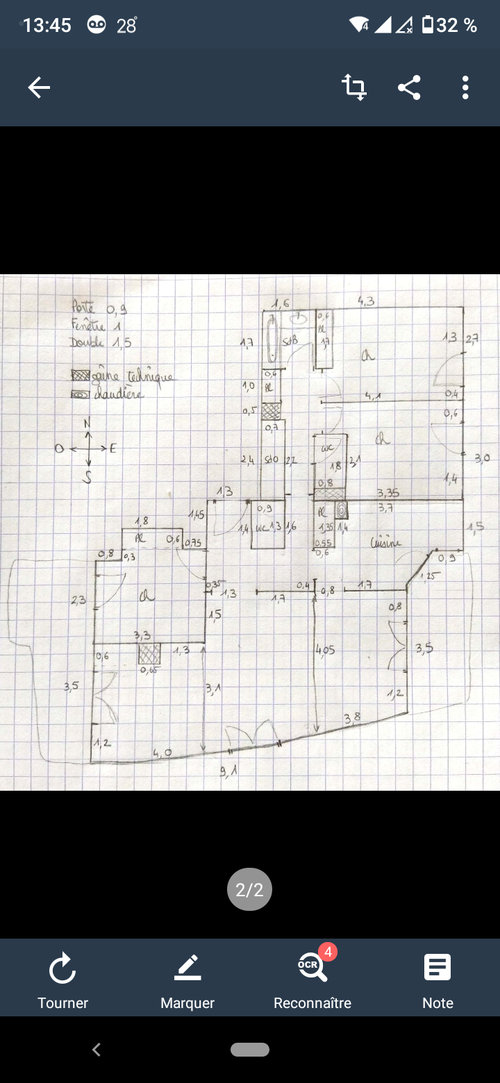 13:45
28°
4
32 %
Porte 0,9
Fenêtre 1
Double 1,5
gaine technique
chaudière
N
O E
S
1,6
4,3
0,6
Pl
1,7
1,7
SdB
Ch
1,3
2,7
0,6
1,0
Pl
0,4
4,1
0,5
0,6
0,7
Ch
WC
2,4
SdD
2,2
1,8
2,1
3,0
0,8
1,4
3,35
1,3
3,7
0,9
1,45
1,4
WC
1,3
1,6
Pl
1,35
1,4
1,5
1,8
Pl
0,6
0,75
0,55
0,6
Cuisine
0,8
0,3
0,9
1,25
0,35
1,3
0,4
0,8
1,7
1,7
Ch
2,3
1,5
0,8
3,3
1,3
4,05
3,5
0,6
0,65
3,5
3,1
1,2
1,2
3,8
4,0
9,1
2/2
OCR
4
Tourner
Marquer
Reconnaître
Note